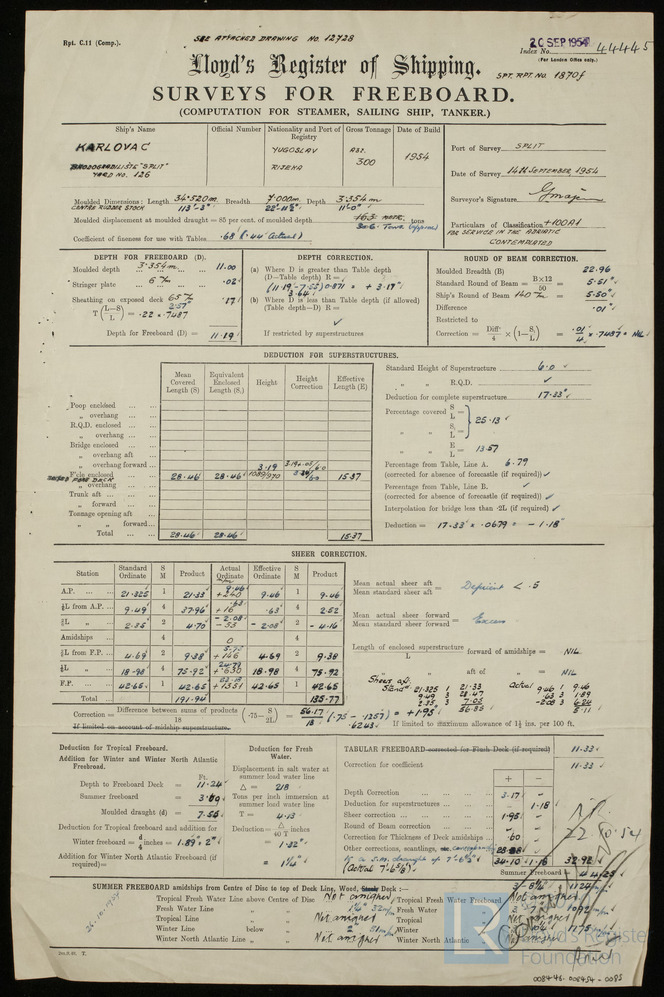 Rpt. C.11 (Comp.).
SEE ATTACHED DRAWING NO. 12728
20 SEP 1954
Index No. 44445
(For London Office only.)
Lloyd's Register of Shipping.
SPT. RPT. NO. 1870f
SURVEYS FOR FREEBOARD.
(COMPUTATION FOR STEAMER, SAILING SHIP, TANKER.)
Ship's Name Official Number Nationality and Port of Registry Gross Tonnage Date of Build
KARLOVAC
BRODOGRADILISTE "SPLIT"
YARD NO. 126
YUGOSLAV
RIJEKA
ABT. 300
1954
Port of Survey SPLIT
Date of Survey 14th SEPTEMBER, 1954
Surveyor's Signature
Particulars of Classification +100A1
FOR SERVICE IN THE ADRIATIC
CONTEMPLATED
Moulded Dimensions: Length 34.520m. Breadth 7.000m. Depth 3.354m
CENTRE RUDDER STOCK 113'-3" 22'-11½" 11'-0"
Moulded displacement at moulded draught = 85 per cent. of moulded depth tons
Coefficient of fineness for use with Tables .68 (.44 actual)
DEPTH FOR FREEBOARD (D).
Moulded depth 3.354m 11.00
Stringer plate 6 m/m .02
Sheathing on exposed deck 65 m/m .17
T (L–S/L) = .22 × .7487
Depth for Freeboard (D) = 11.19
DEPTH CORRECTION.
(a) Where D is greater than Table depth
(D—Table depth) R =
(11.19-7.55) 0.871 = + 3.17"
3.64
(b) Where D is less than Table depth (if allowed)
(Table depth—D) R =
If restricted by superstructures
ROUND OF BEAM CORRECTION.
Moulded Breadth (B) 22.96
Standard Round of Beam = B×12/50 = 5.51"
Ship's Round of Beam 140 m/m = 5.50"
Difference .01"
Restricted to
Correction = Diff/4 × (1–S₁/L) = .01/4 × .7487 = NIL
DEDUCTION FOR SUPERSTRUCTURES.
Mean Covered Length (S) Equivalent Enclosed Length (S₁) Height Height Correction Effective Length (E)
Poop enclosed
„ overhang
R.Q.D. enclosed
„ overhang
Bridge enclosed
„ overhang aft
„ overhang forward
F'cle enclosed 28.46 28.46 3.19 15.37
„ overhang
Trunk aft
„ forward
Tonnage opening aft
„ „ forward
Total 28.46 28.46 15.37
Standard Height of Superstructure 6.0
„ „ R.Q.D.
Deduction for complete superstructure 17.33"
Percentage covered S/L =
25.13
„ „ S₁/L =
„ „ E/L = 13.57
Percentage from Table, Line A. 6.79
(corrected for absence of forecastle (if required))
Percentage from Table, Line B.
(corrected for absence of forecastle (if required))
Interpolation for bridge less than .2L (if required)
Deduction = 17.33 × .0679 = – 1.18"
SHEER CORRECTION.
Station Standard Ordinate S M Product Actual Ordinate Effective Ordinate S M Product
A.P. 21.325 1 21.33 9.46 +240 9.46 1 9.46
⅙L from A.P. 9.49 4 37.96 .63 +16 .63 4 2.52
⅓L „ 2.35 2 4.70 -2.08 -53 -2.08 2 -4.16
Amidships 4 0 4
⅓L from F.P. 4.69 2 9.38 5.75 +146 4.69 2 9.38
⅙L „ 18.98 4 75.92 24.79 +630 18.98 4 75.92
F.P. 42.65 1 42.65 +1351 42.65 1 42.65
Total 191.94 135.77
Mean actual sheer aft / Mean standard sheer aft = Deficient < .5
Mean actual sheer forward / Mean standard sheer forward = Excess
Length of enclosed superstructure/L forward of amidships = NIL
„ „ aft of „ = NIL
Sheer aft.
Stand. 21.325 1 21.33 Actual 9.46 1 9.46
9.49 3 28.47 .63 3 1.89
2.35 3 7.05 -2.08 3 6.24
56.85 5.11
Correction = Difference between sums of products/18 (.75– S/2L) = 56.17/18 (.75 - .1257) = +1.95"
.6243
If limited on account of midship superstructure.
If limited to maximum allowance of 1½ ins. per 100 ft.
Deduction for Tropical Freeboard.
Addition for Winter and Winter North Atlantic
Freeboard.
Ft.
Depth to Freeboard Deck = 11.24
Summer freeboard = 3.69
Moulded draught (d) = 7.55
Deduction for Tropical freeboard and addition for
Winter freeboard = d/4 inches = 1.89" 2"
Addition for Winter North Atlantic Freeboard (if
required) =
Deduction for Fresh
Water.
Displacement in salt water at
summer load water line
Δ = 218
Tons per inch immersion at
summer load water line
T = 4.13
Deduction = Δ/40 T inches
= 1.32"
= 1¼"
TABULAR FREEBOARD corrected for Flush Deck (if required) 11.33
Correction for coefficient 11.33
+ –
Depth Correction 3.17 –
Deduction for superstructures – 1.18
Sheer correction 1.95 –
Round of Beam correction – –
Correction for Thickness of Deck amidships .60 –
Other corrections, scantlings,
to a S.M. draught of 7'-6½"
(Actual 7'-6⅝")
34.10 1.18 32.92
Summer Freeboard = 44.25
22.10.54
SUMMER FREEBOARD amidships from Centre of Disc to top of Deck Line, Wood, Steel Deck:—
Tropical Fresh Water Line above Centre of Disc Not assigned
Fresh Water Line „ „
Tropical Line „ „ Not assigned
Winter Line below „ 2" 51 m/m
Winter North Atlantic Line „ „ Not assigned
Tropical Fresh Water Freeboard Not assigned
Fresh Water „
Tropical „ Not assigned
Winter „
Winter North Atlantic „ Not assigned
Lloyd's Register
Foundation
0084-48. 008454 - 0095